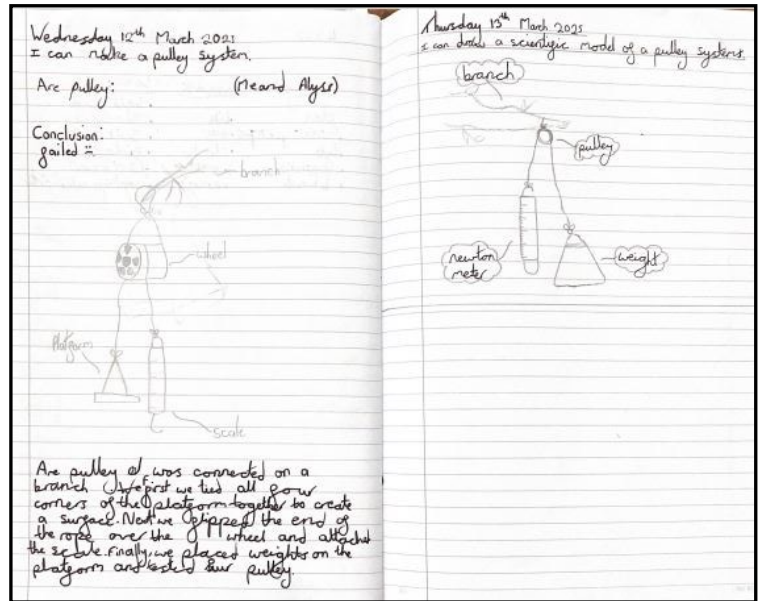 Wednesday 12th March 2021
I can make a pulley system.
Are pulley: (Me and Alyss)
Conclusion:
failed
branch
wheel
Platform
scale
Are pulley was connected on a
branch first we tied all four
corners of the platform together to create
a surface. Next we flipped the end of
the rope over the wheel and attached
the scale. Finally, we placed weights on the
platform and tested our pulley.
Thursday 13th March 2025
I can draw a scientific model of a pulley systems.
branch
pulley
newton
meter
weight